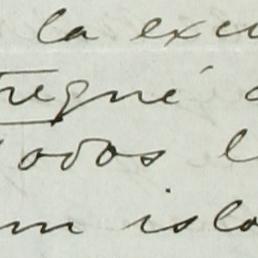 la excu
tregué
todos l
m isla